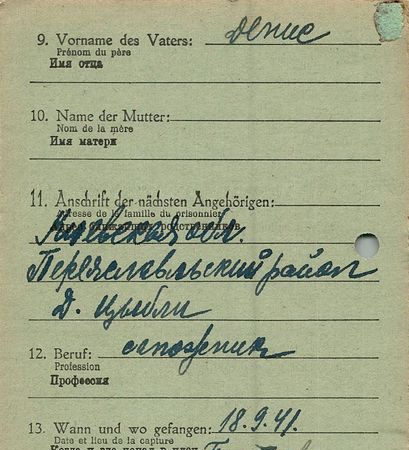 9. Vorname des Vaters: Денис
Prénom du père
Имя отца
10. Name der Mutter:
Nom de la mère
Имя матери
11. Anschrift der nächsten Angehörigen:
Adresse de la famille du prisonnier
Адрес ближайших родственников
Киевская обл.
Переяславльский район
д. Цыбли
12. Beruf: сапожник
Profession
Профессия
13. Wann und wo gefangen: 18.9.41.
Date et lieu de la capture
Когда и где попал в плен